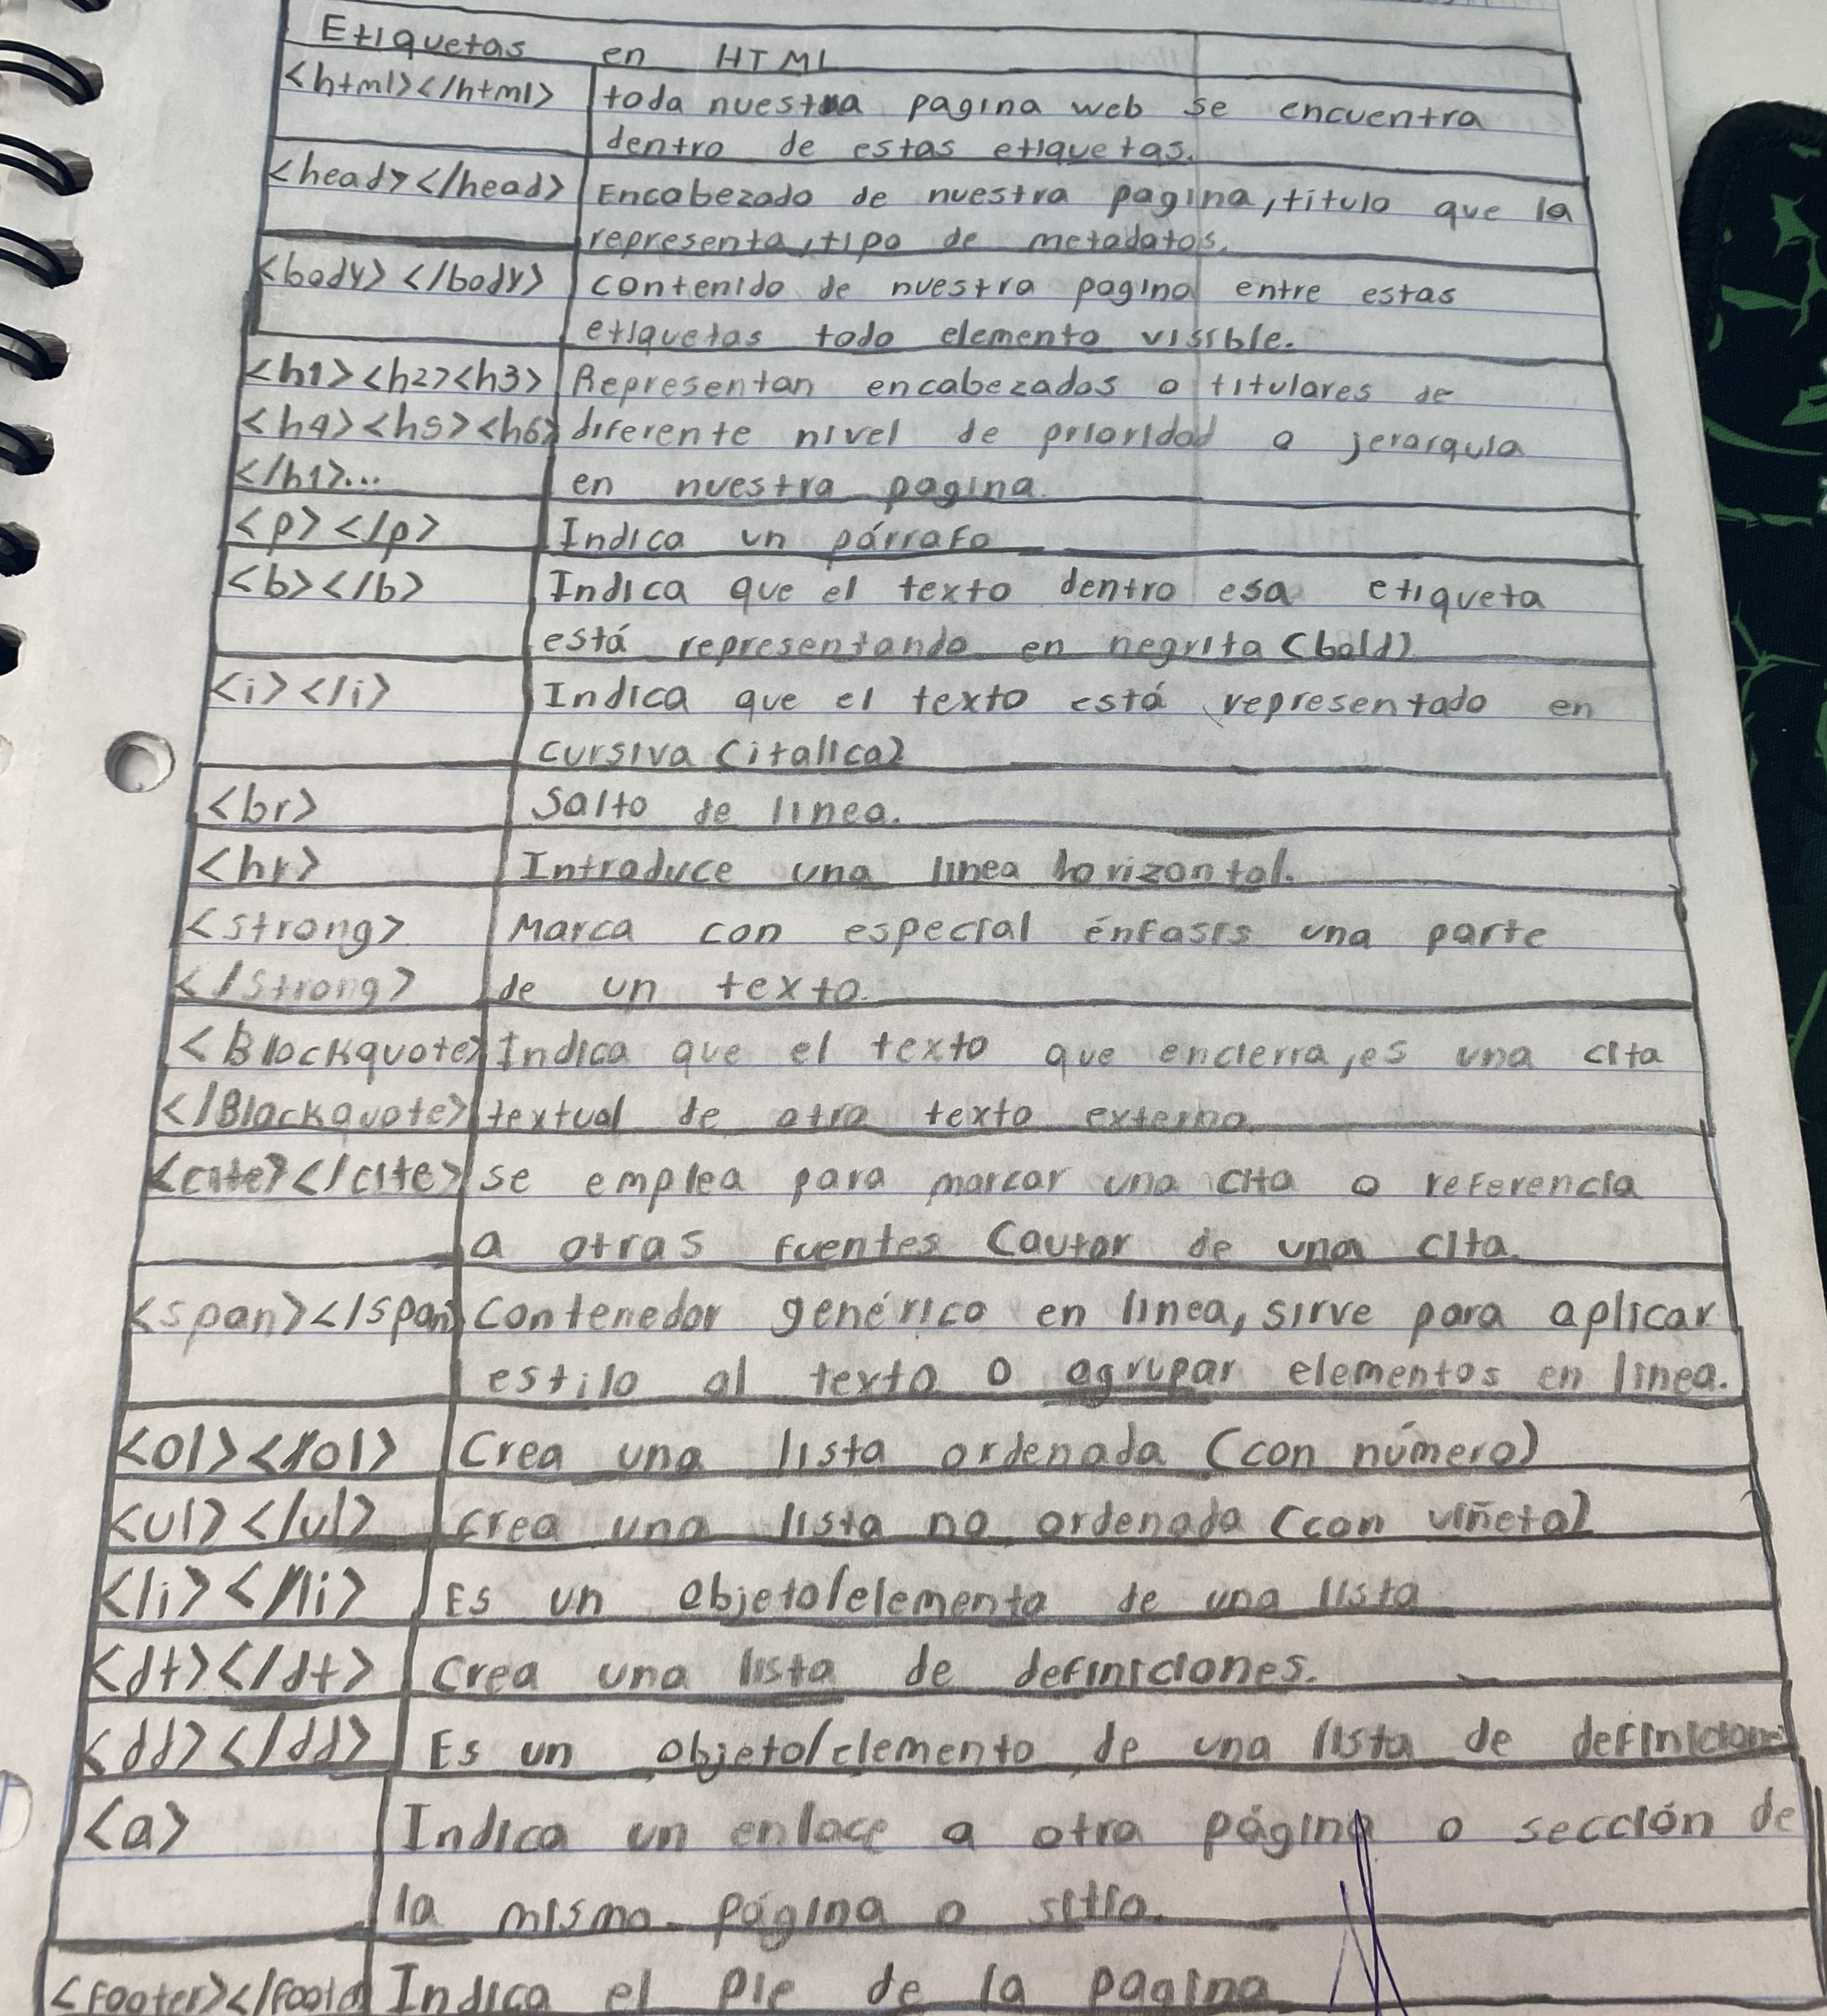 Etiquetas en HTML
<html></html> toda nuestra pagina web se encuentra
dentro de estas etiquetas.
<head></head> Encabezado de nuestra pagina, titulo que la
representa, tipo de metadatos.
<body></body> contenido de nuestra pagina entre estas
etiquetas todo elemento visible.
<h1><h2><h3> Representan encabezados o titulares de
<h4><h5><h6> diferente nivel de prioridad o jerarquia
</h1>... en nuestra pagina.
<p></p> Indica un párrafo
<b></b> Indica que el texto dentro esa etiqueta
está representando en negrita (bold)
<i></i> Indica que el texto está representado en
cursiva (italica)
<br> Salto de linea.
<hr> Introduce una linea horizontal.
<strong> Marca con especial énfasis una parte
</strong> de un texto.
<Blockquote> Indica que el texto que encierra, es una cita
</Blockquote> textual de otro texto externo.
<cite></cite> se emplea para marcar una cita o referencia
a otras fuentes (autor de una cita.
<span></span> Contenedor genérico en linea, sirve para aplicar
estilo al texto o agrupar elementos en linea.
<ol></ol> Crea una lista ordenada (con número)
<ul></ul> crea una lista no ordenada (con viñeta)
<li></li> Es un objeto/elemento de una lista
<dt></dt> Crea una lista de definiciones.
<dd></dd> Es un objeto/elemento de una lista de definicione
<a> Indica un enlace a otra página o sección de
la misma página o sitio.
<footer></foote Indica el pie de la pagina